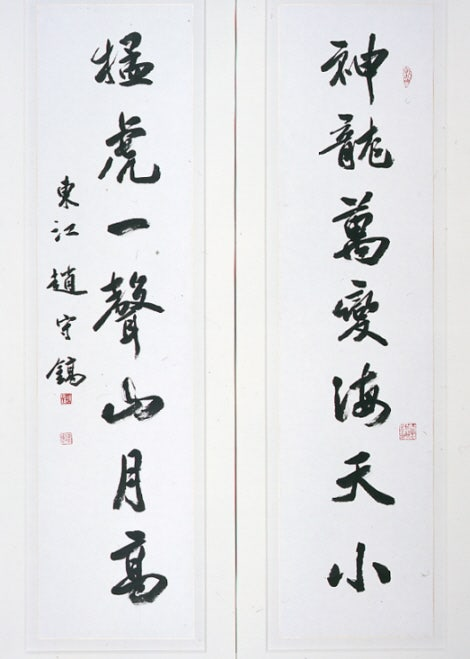 神龍萬變海天小
猛虎一聲山月高
東江趙守鎬